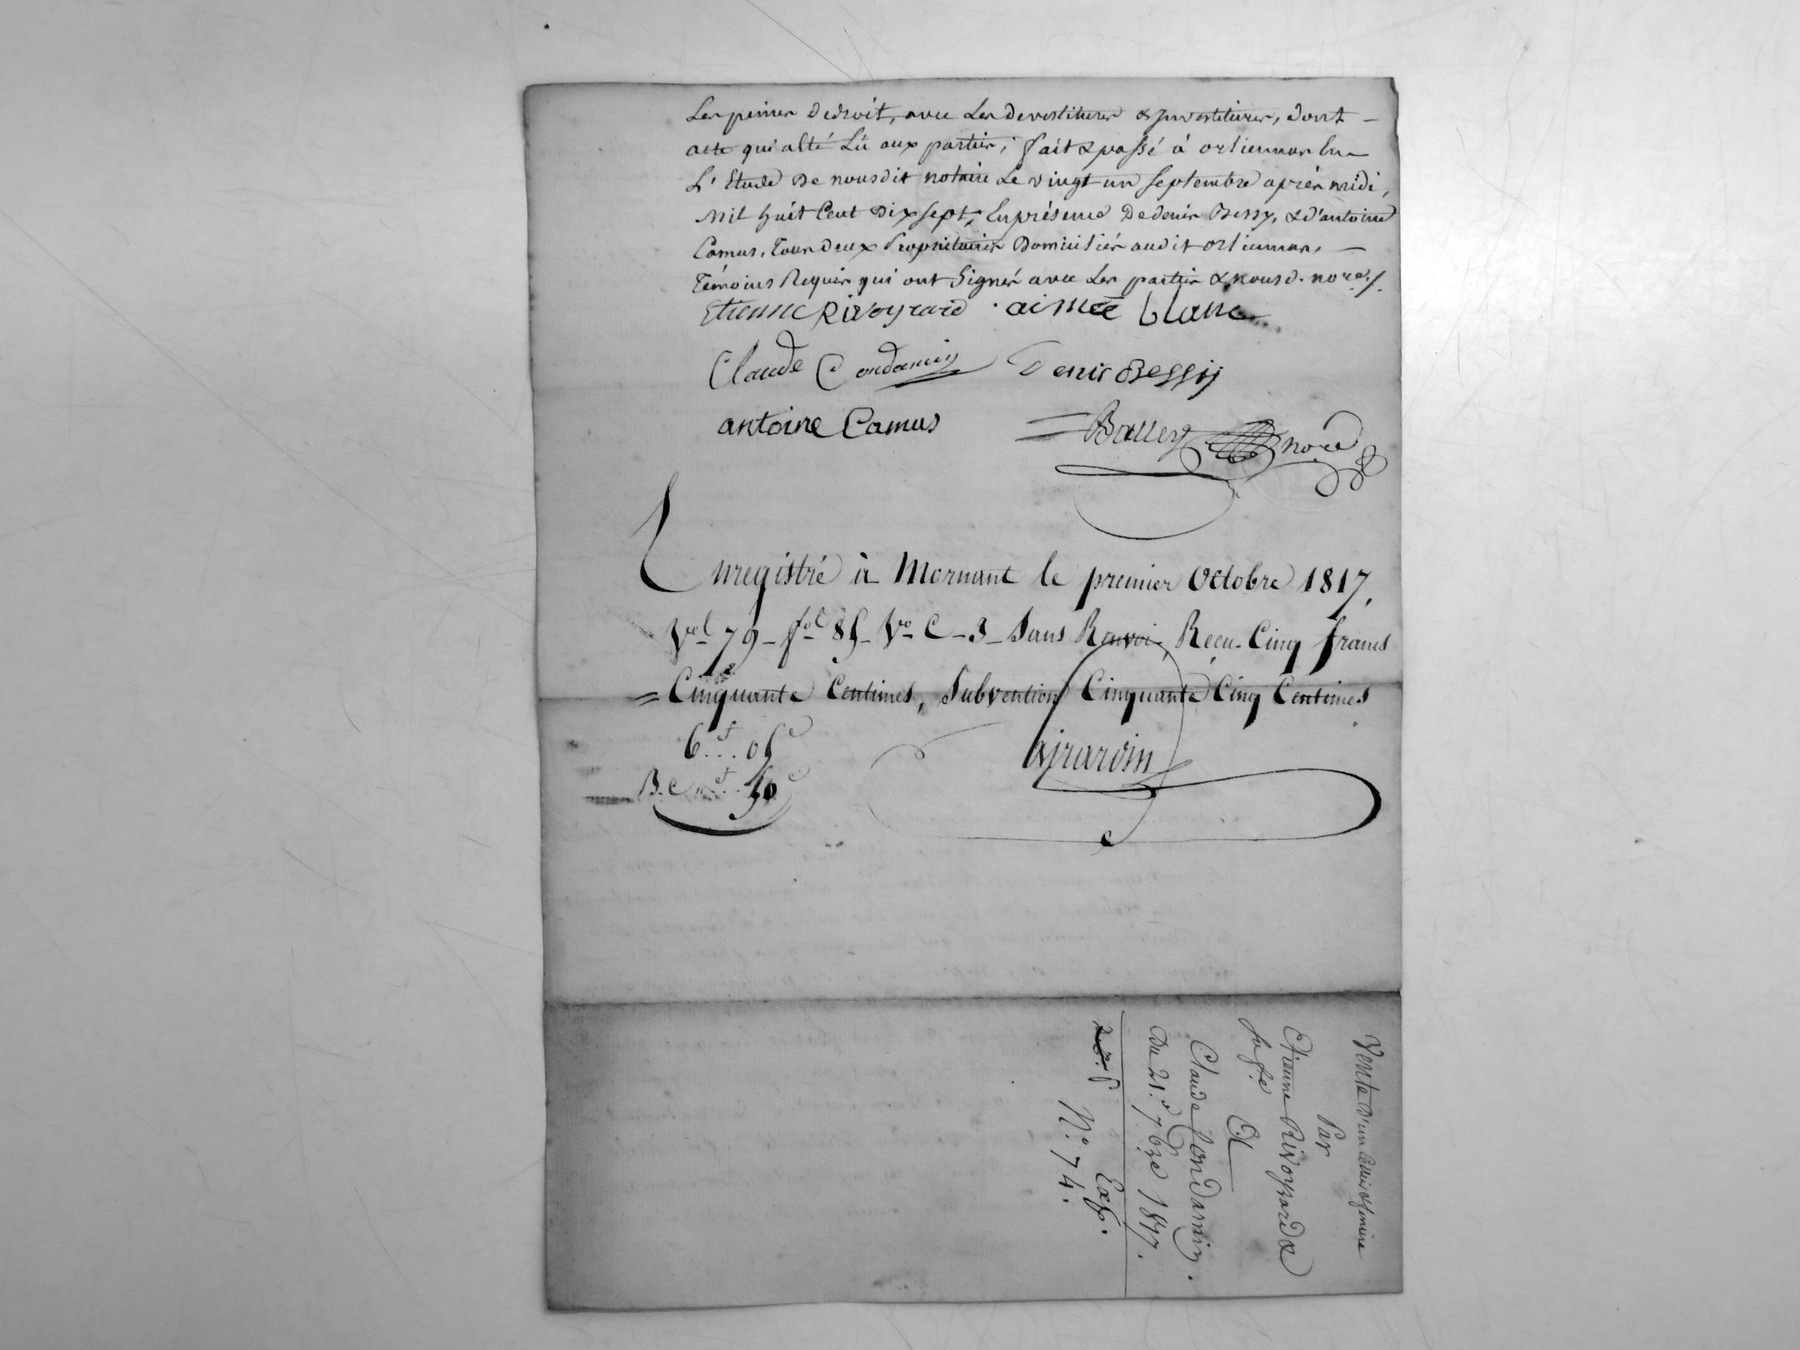 Les peines de droit, avec Les devestitures & Investitures, dont —
acte qui a été Lû aux parties; fait & passé à orlienas En
L'Etude De nousdit notaire Le vingt un Septembre après midi,
Mil huit Cent Dix Sept, En présence De denis Bessy, & d'antoine
Camus, Tous deux Propriétaires Domiciliés audit orlienas, —
Témoins Requis qui ont Signés avec Les parties & nousd. nore./.
Etienne Rivoyrard . aimée blanc
Claude Condamin Denis Bessy
antoine Camus Balley nore
Enregistré à Mornant le premier Octobre 1817.
Vol 79 – fol 85 – Vo C – 3 – Sans Renvoi, Reçu Cinq francs
= Cinquante Centimes, Subvention Cinquante Cinq Centimes
6 f.. 05 c
B.C. f.. 50 c
Girardin
Vente d'un
Par
Etienne Rivoyrard &
Sa fe
A
Claude Condamin.
Du 21.e 7bre 1817.
Exp.
N.o 74.